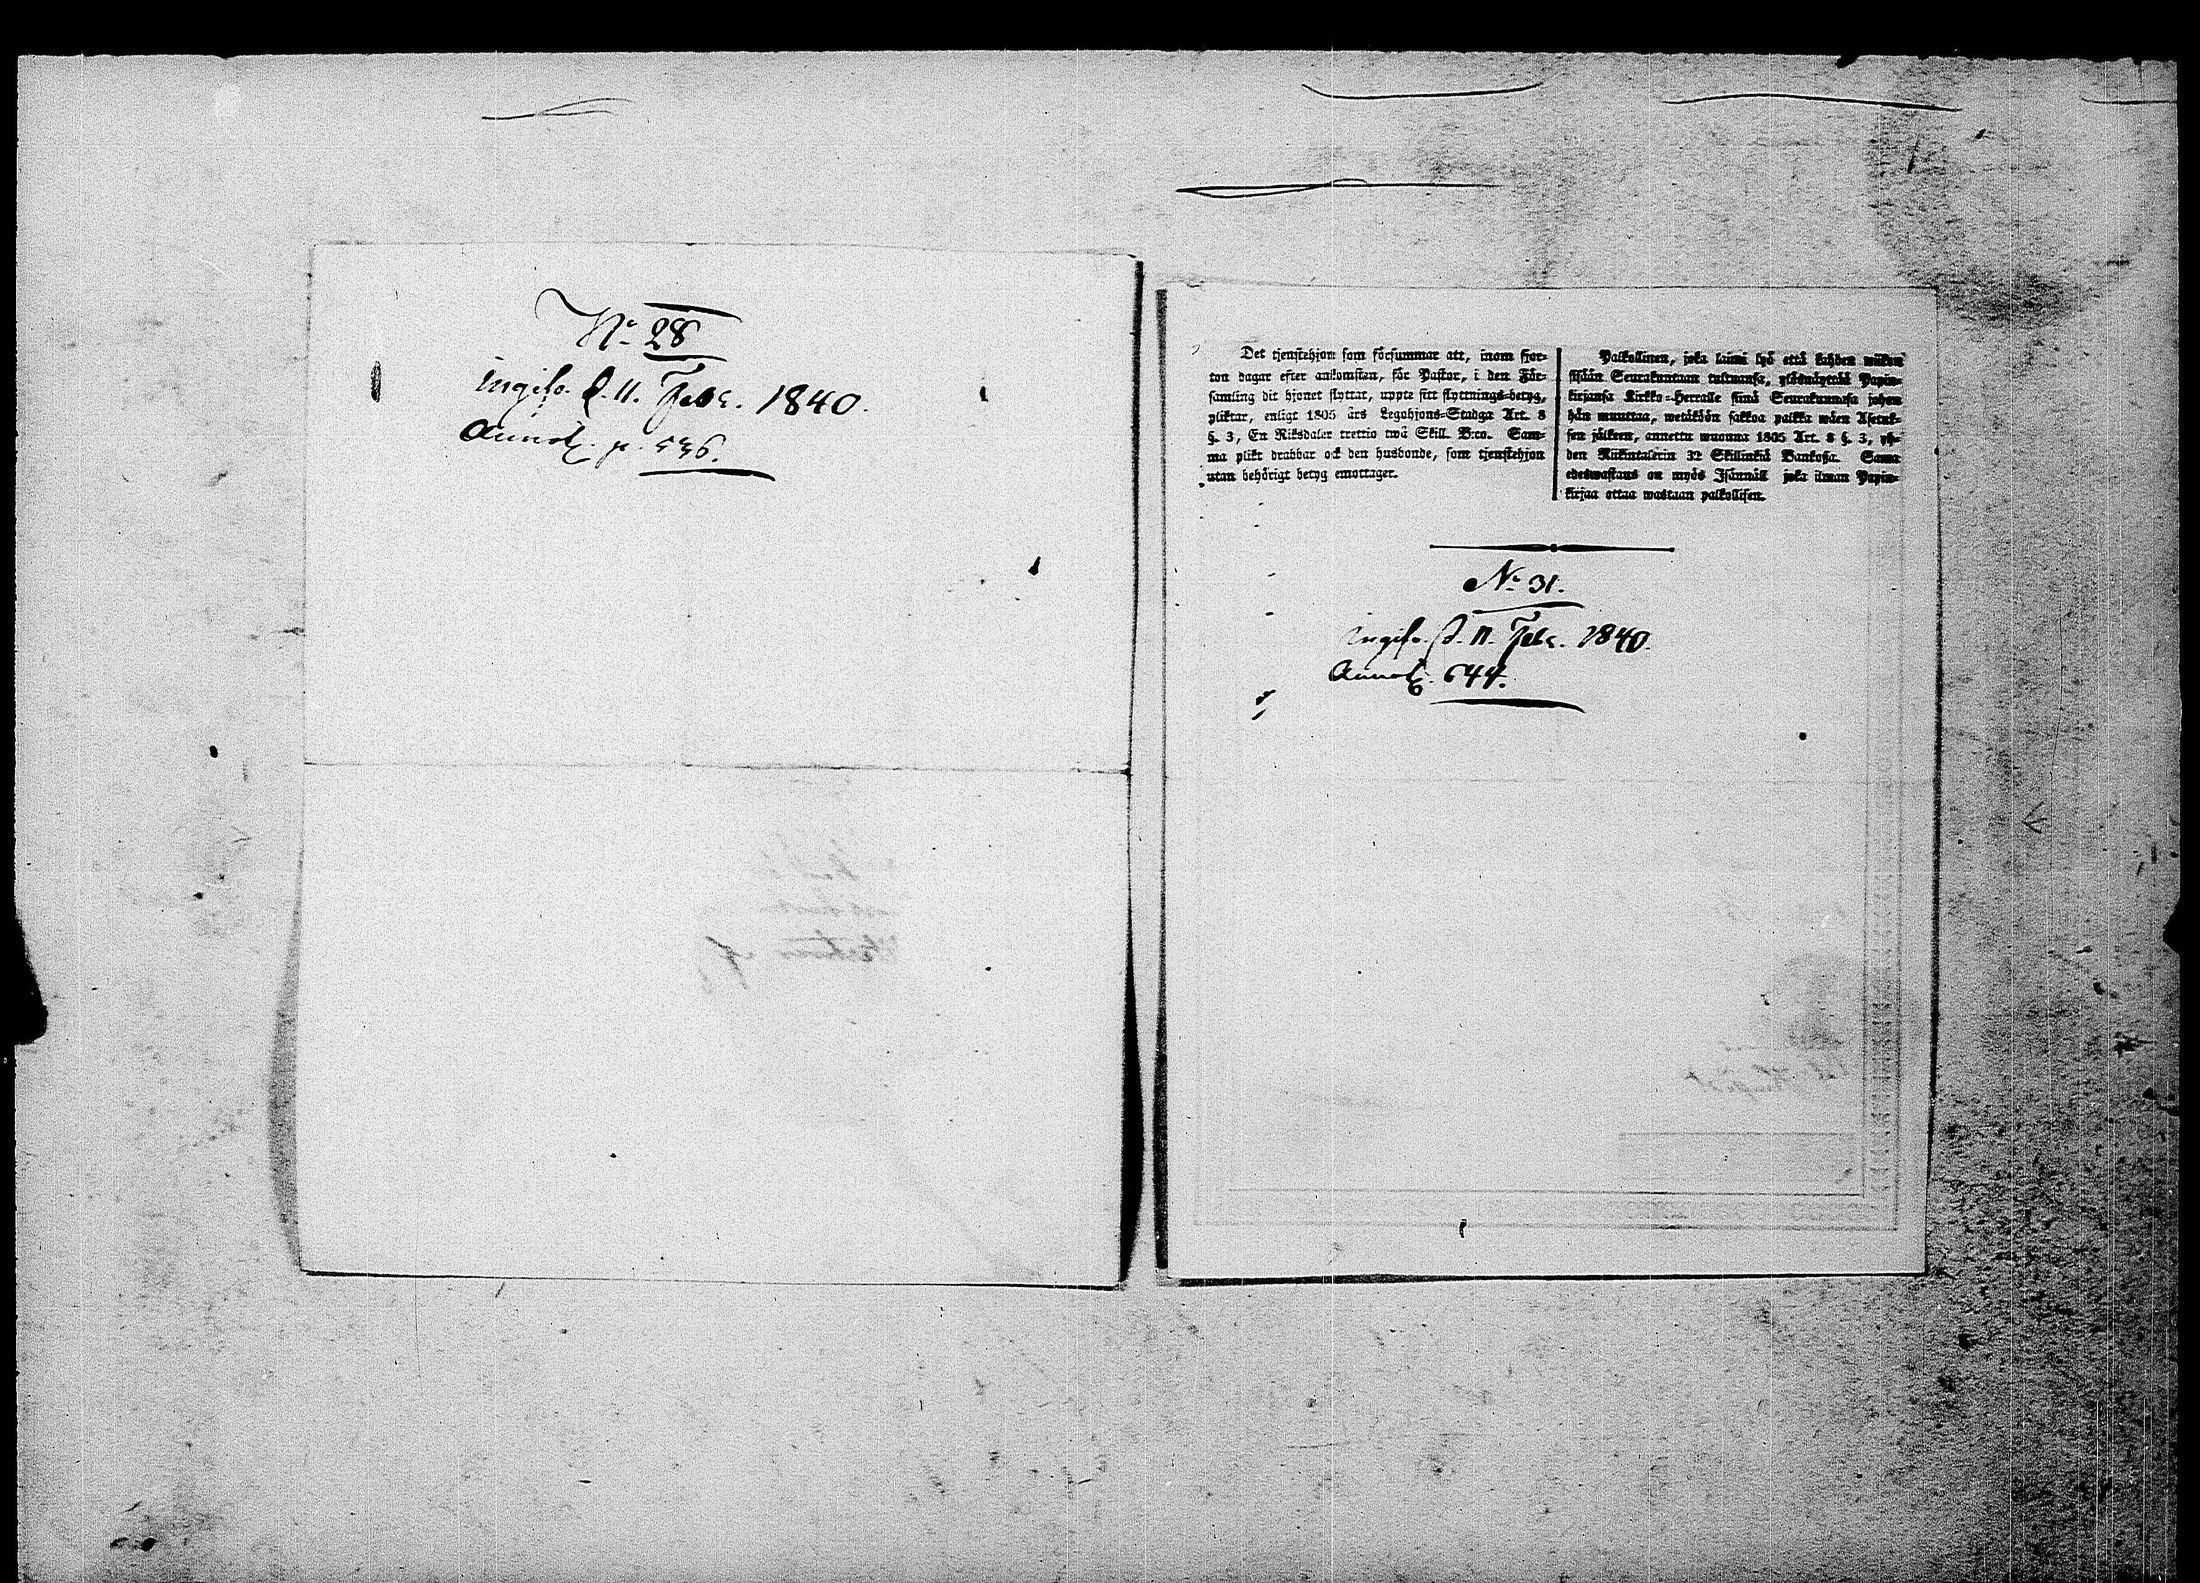 No 28
Ingifv. d. 11. Febr. 1840.
Annot. p. 536.
Det tjenstehjon som försummar att, inom fjor-
ton dagar efter ankomsten, för Pastor, i den För-
samling dit hjonet flyttar, uppte sitt flyttnings-betyg,
pliktar, enligt 1805 års Legohjons-Stadga Art. 8
§. 3, En Riksdaler trettio twå Skill. B:co. Sam-
ma plikt drabbar ock den husbonde, som tjenstehjon
utan behörigt betyg emottager.
Palkollinen, joka laimi lyö että kahden wiikon
sisään Seurakuntaan tultuansa, ylösnäyttää Papin-
kirjansa Kirkko-Herralle siinä Seurakunnasa johon
hän muuttaa, wetäköön sakkoa palkka wäen Asetuk-
sen jälkeen, annettu wuonna 1805 Art. 8 §. 3, yh-
den Riikintalerin 32 Skillinkiä Bankossa. Sama
edeswastaus on myös Isännäll joka ilman Papin-
kirjaa ottaa wastaan palkollisen.
No 31.
Ingifv. d. 11. Febr. 1840.
Annot. 644.